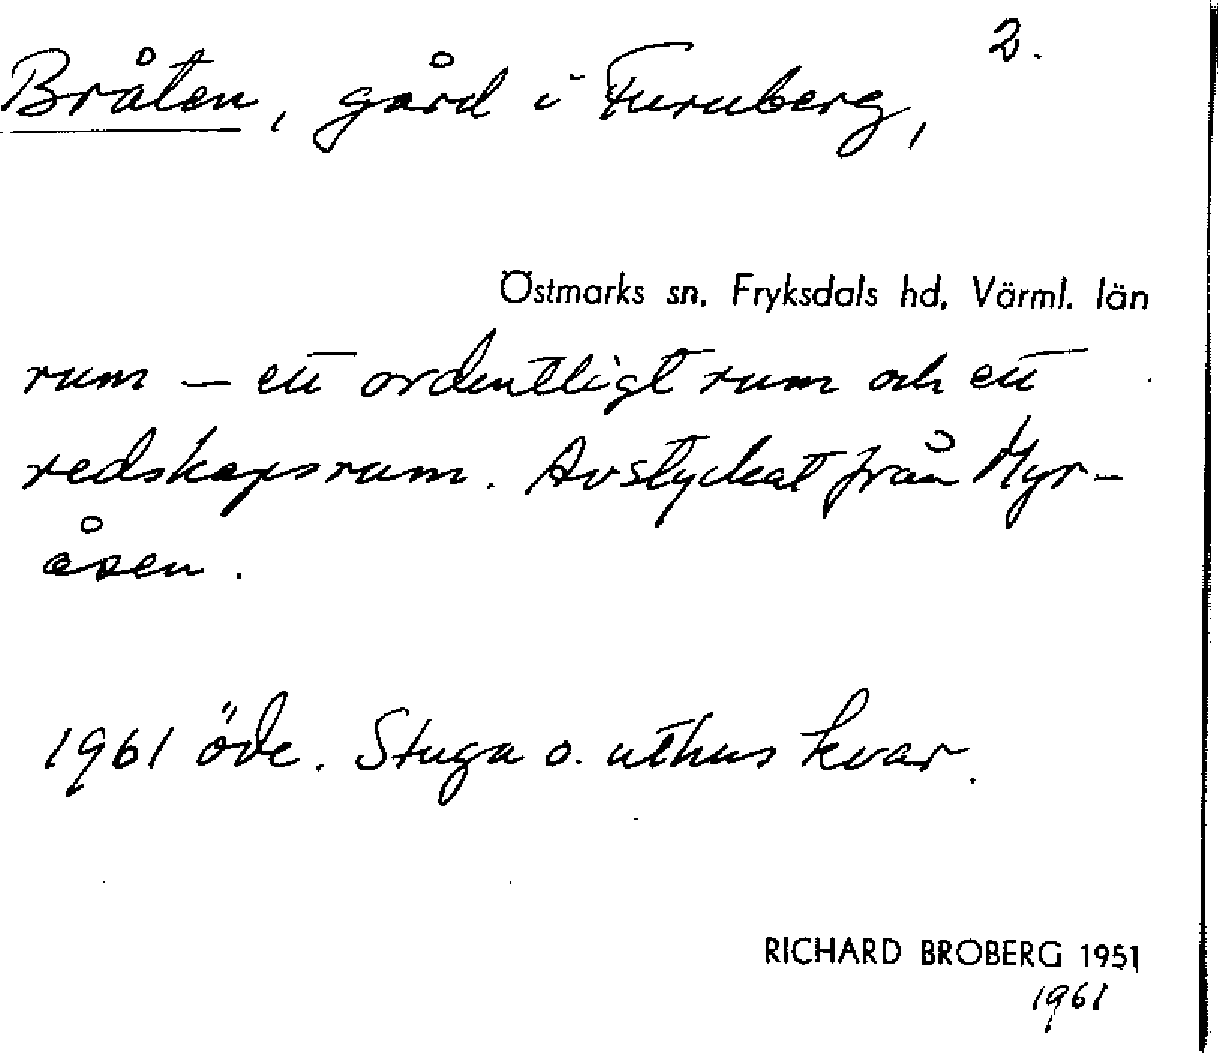 2.
Bråten, gård i Furuberg,
Östmarks sn. Fryksdals hd. Värml. län
rum – ett ordentligt rum och ett
redskapsrum. Avstyckat från Myr-
åsen.
1961 öde. Stuga o. uthus kvar.
RICHARD BROBERG 1951
1961